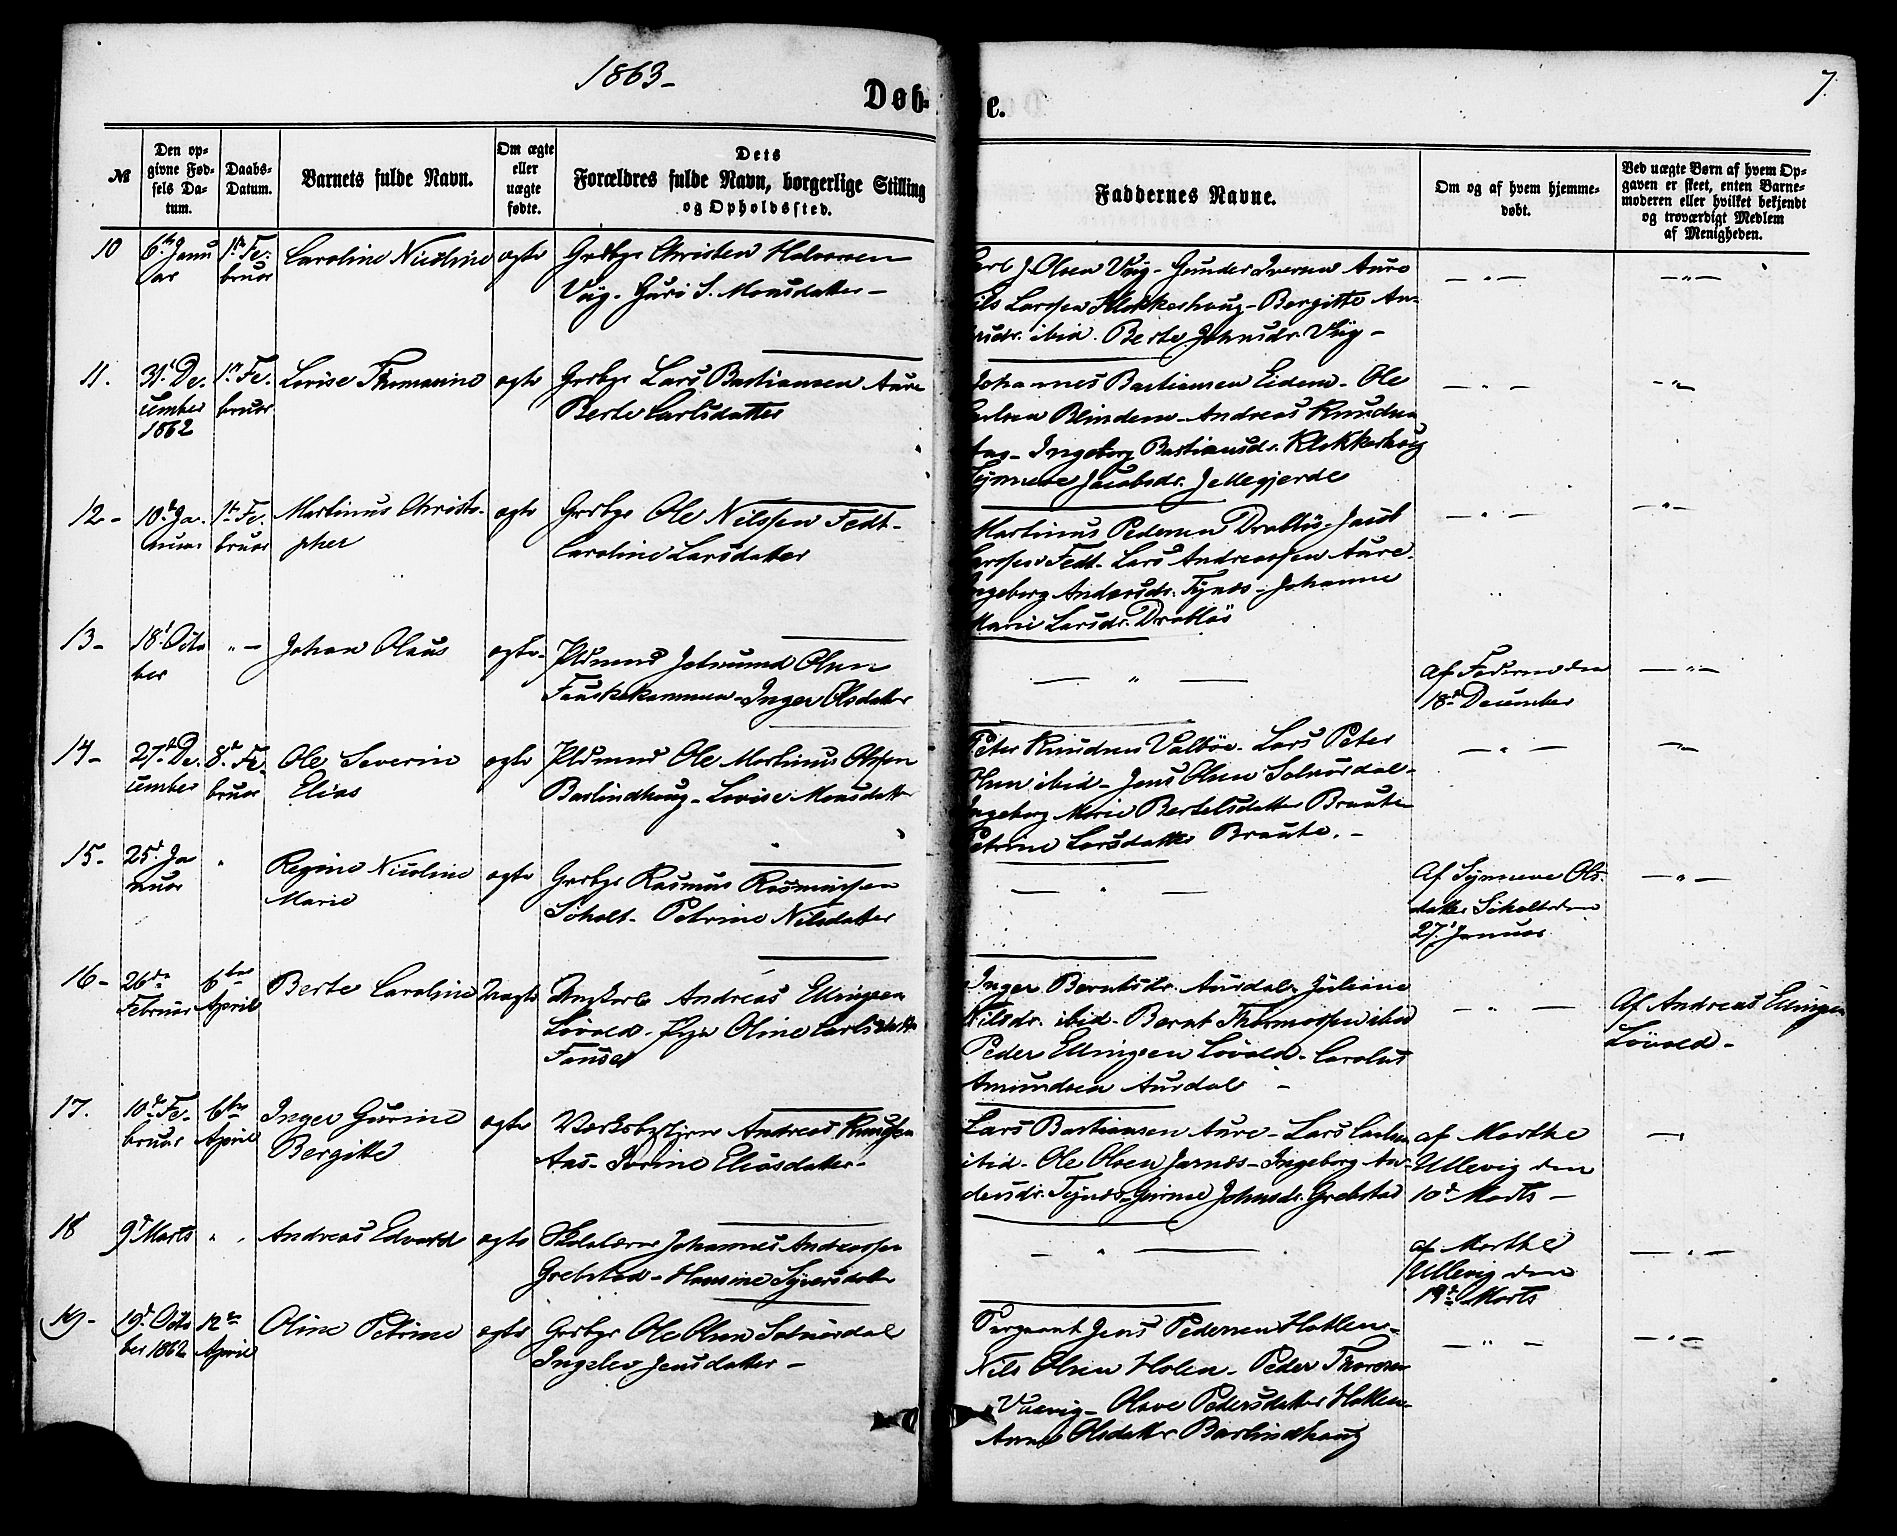 1863-
7.
Døb-
e.
№
Den op-
givne Fød-
sels Da-
tum.
Daabs-
Datum.
Barnets fulde Navn.
Om ægte
eller
uægte
fødte.
Dets
Forældres fulde Navn, borgerlige Stilling
og Opholdssted.
Faddernes Navne.
Om og af hvem hjemme-
døbt.
Ved uægte Børn af hvem Op-
gaven er skeet, enten Barne-
moderen eller hvilket bekjendt
og troværdigt Medlem
af Menigheden.
10
6te Janu
ar
1te Fe-
bruar
Caroline Nicoline
ægte
Grdbgr Christen Halvorsen
Viig. Guri S. Monsdatter -
Carl J. Olsen Viig - Gunder Iversen Aure
Nils Larssen Klokkerhoug - Bergitte An-
ibid. Berte Johnsdr. Viig -
11.
31t De-
cember
1862
1te Fe-
bruar
Lovise Thomasine
ægte
Grdbgr Lars Bastiansen Aure
Berte Carlsdatter
Johannes Bastiansen Eidem - Ole
Carlsen Blindem - Andreas Knudsen
Ingeborg Bastiansdr. Klokkerhoug
Synneve Jacobsdr. Jellegjerde
12 -
10de Ja-
nuar
1te Fe-
bruar
Martinus Christo-
pher
ægte
Grdbgr Ole Nilssen Fedt -
Caroline Larsdatter
Martinus Pedersen Drabløs - Jacob
Larssen Fedt - Lars Andreassen Aure -
Ingeborg Andersdr. Tynes - Johanne
Marie Larsdr. Drabløs
13 -
18t Octo
ber
" -
Johan Olaus
ægte -
Pldsmand Olsen
Inger Olsdatter
- " -
af Faderen den
18de December
- " -
14 -
27de De-
cember
8de Fe-
bruar
Ole Severin
Elias
ægte
Pldsmand Ole Martinus Olssen
Barlindhoug - Lovise Monsdatter
Peter Knudsen Valbøe - Lars Peter
Olsen ibid - Jens Olsen Solnørdal -
Ingeborg Marie Bertelsdatter Braute
Petrine Larsdatter Braute. -
15 -
25de Ja
nuar
"
Regine Nicoline
Marie
ægte
Grdbgr Rasmus Rasmussen
Scholt - Petrine Nilsdatter
- " -
Af Synneve Ols-
datter Scholt den
27t Januar
- " -
16 -
26de
Februar
6te
April
Berte Caroline
Uægte
Ungkarl Andreas Ellingsen
Løvold - Pige Oline Carlsdatter
Inger Berntsdr. Aursdal - Juliane
Nilsdr. ibid - Bernt Thomassen ibid
Peder Ellingsen Løvold - Carolus
Amundsen Aursdal -
Af Andreas Ellingsen
Løvold -
17.
10de Fe-
bruar
6te
April
Inger Gurine
Bergitte
ægte
Andreas Knudsen
Aas - Ivrine Eliasdatter -
Lars Bastiansen Aure - Lars Carlsen
ibid - Ole Olsen - Ingeborg An-
dersdr. Tynes - Gurine Johnsdr. Grebstad
af Marthe
Ullevig den
10de Marts -
18
9de Marts
"
Andreas Edvard
ægte
Skolelærer Johannes Andreassen
Grebstad - Hansine Syversdatter
- " -
af Marthe
Ullevig den
19de Marts
- " -
19 -
19de Octo
ber 1862
12te
April
Oline Petrine
ægte
Grdbgr Ole Olsen Solnørdal
Ingelev Jensdatter -
Sergeant Jens Pedersen Hatlem -
Nils Olsen Holen - Peder Thoresen
Olave Pedersdatter Hatlem -
Anne Olsdatter Barlindhoug